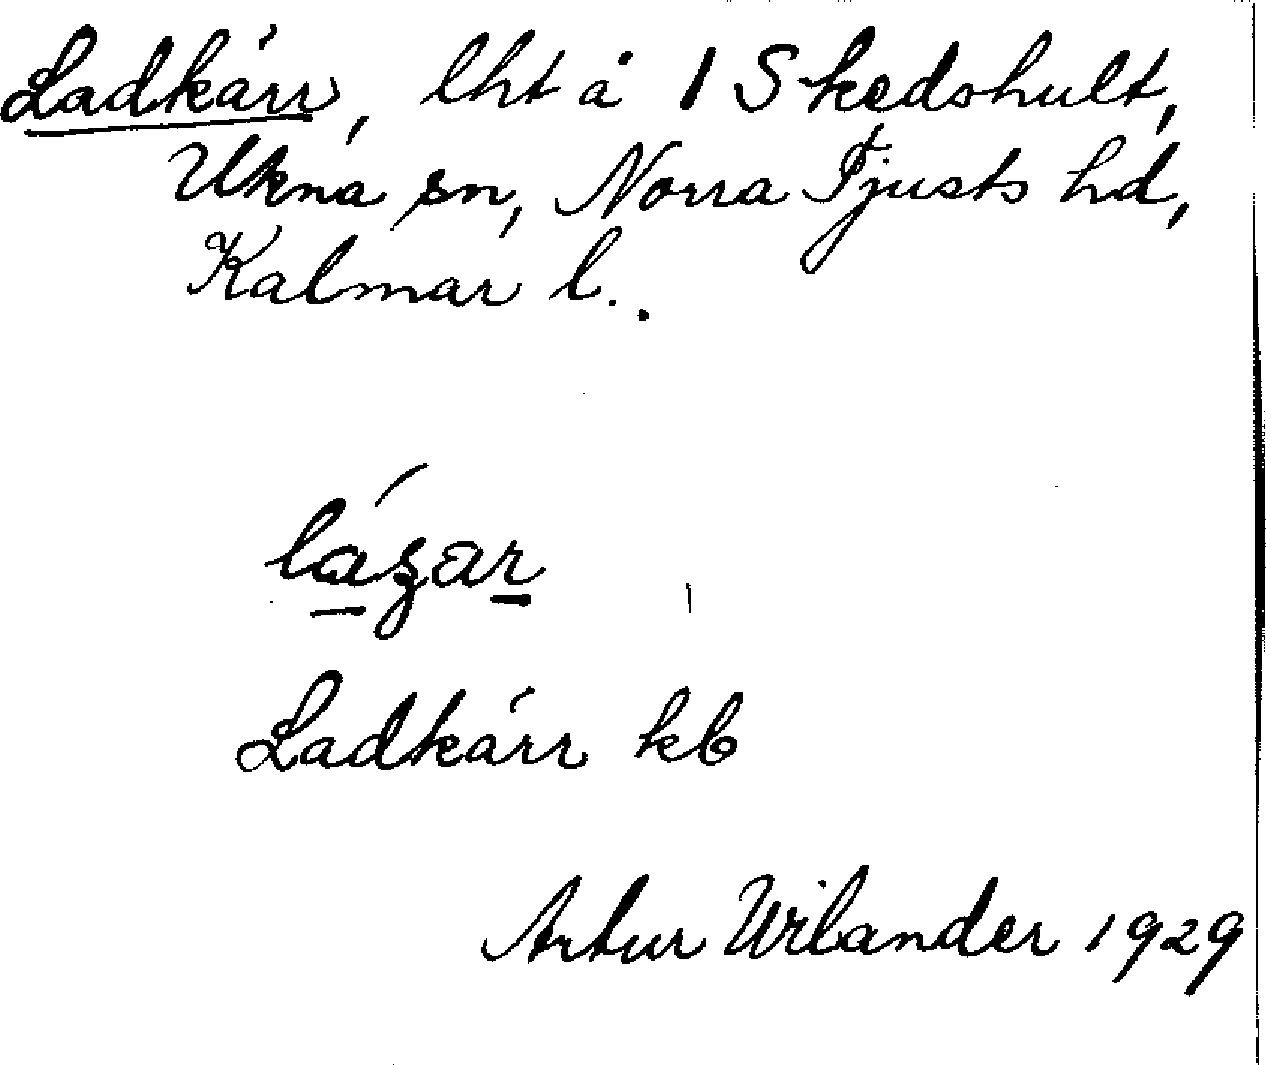 Ladkärr, lht å 1 Skedshult,
Ukna sn, Norra Tjusts hd,
Kalmar l.
Ladkärr kb
Artur Wilander 1929